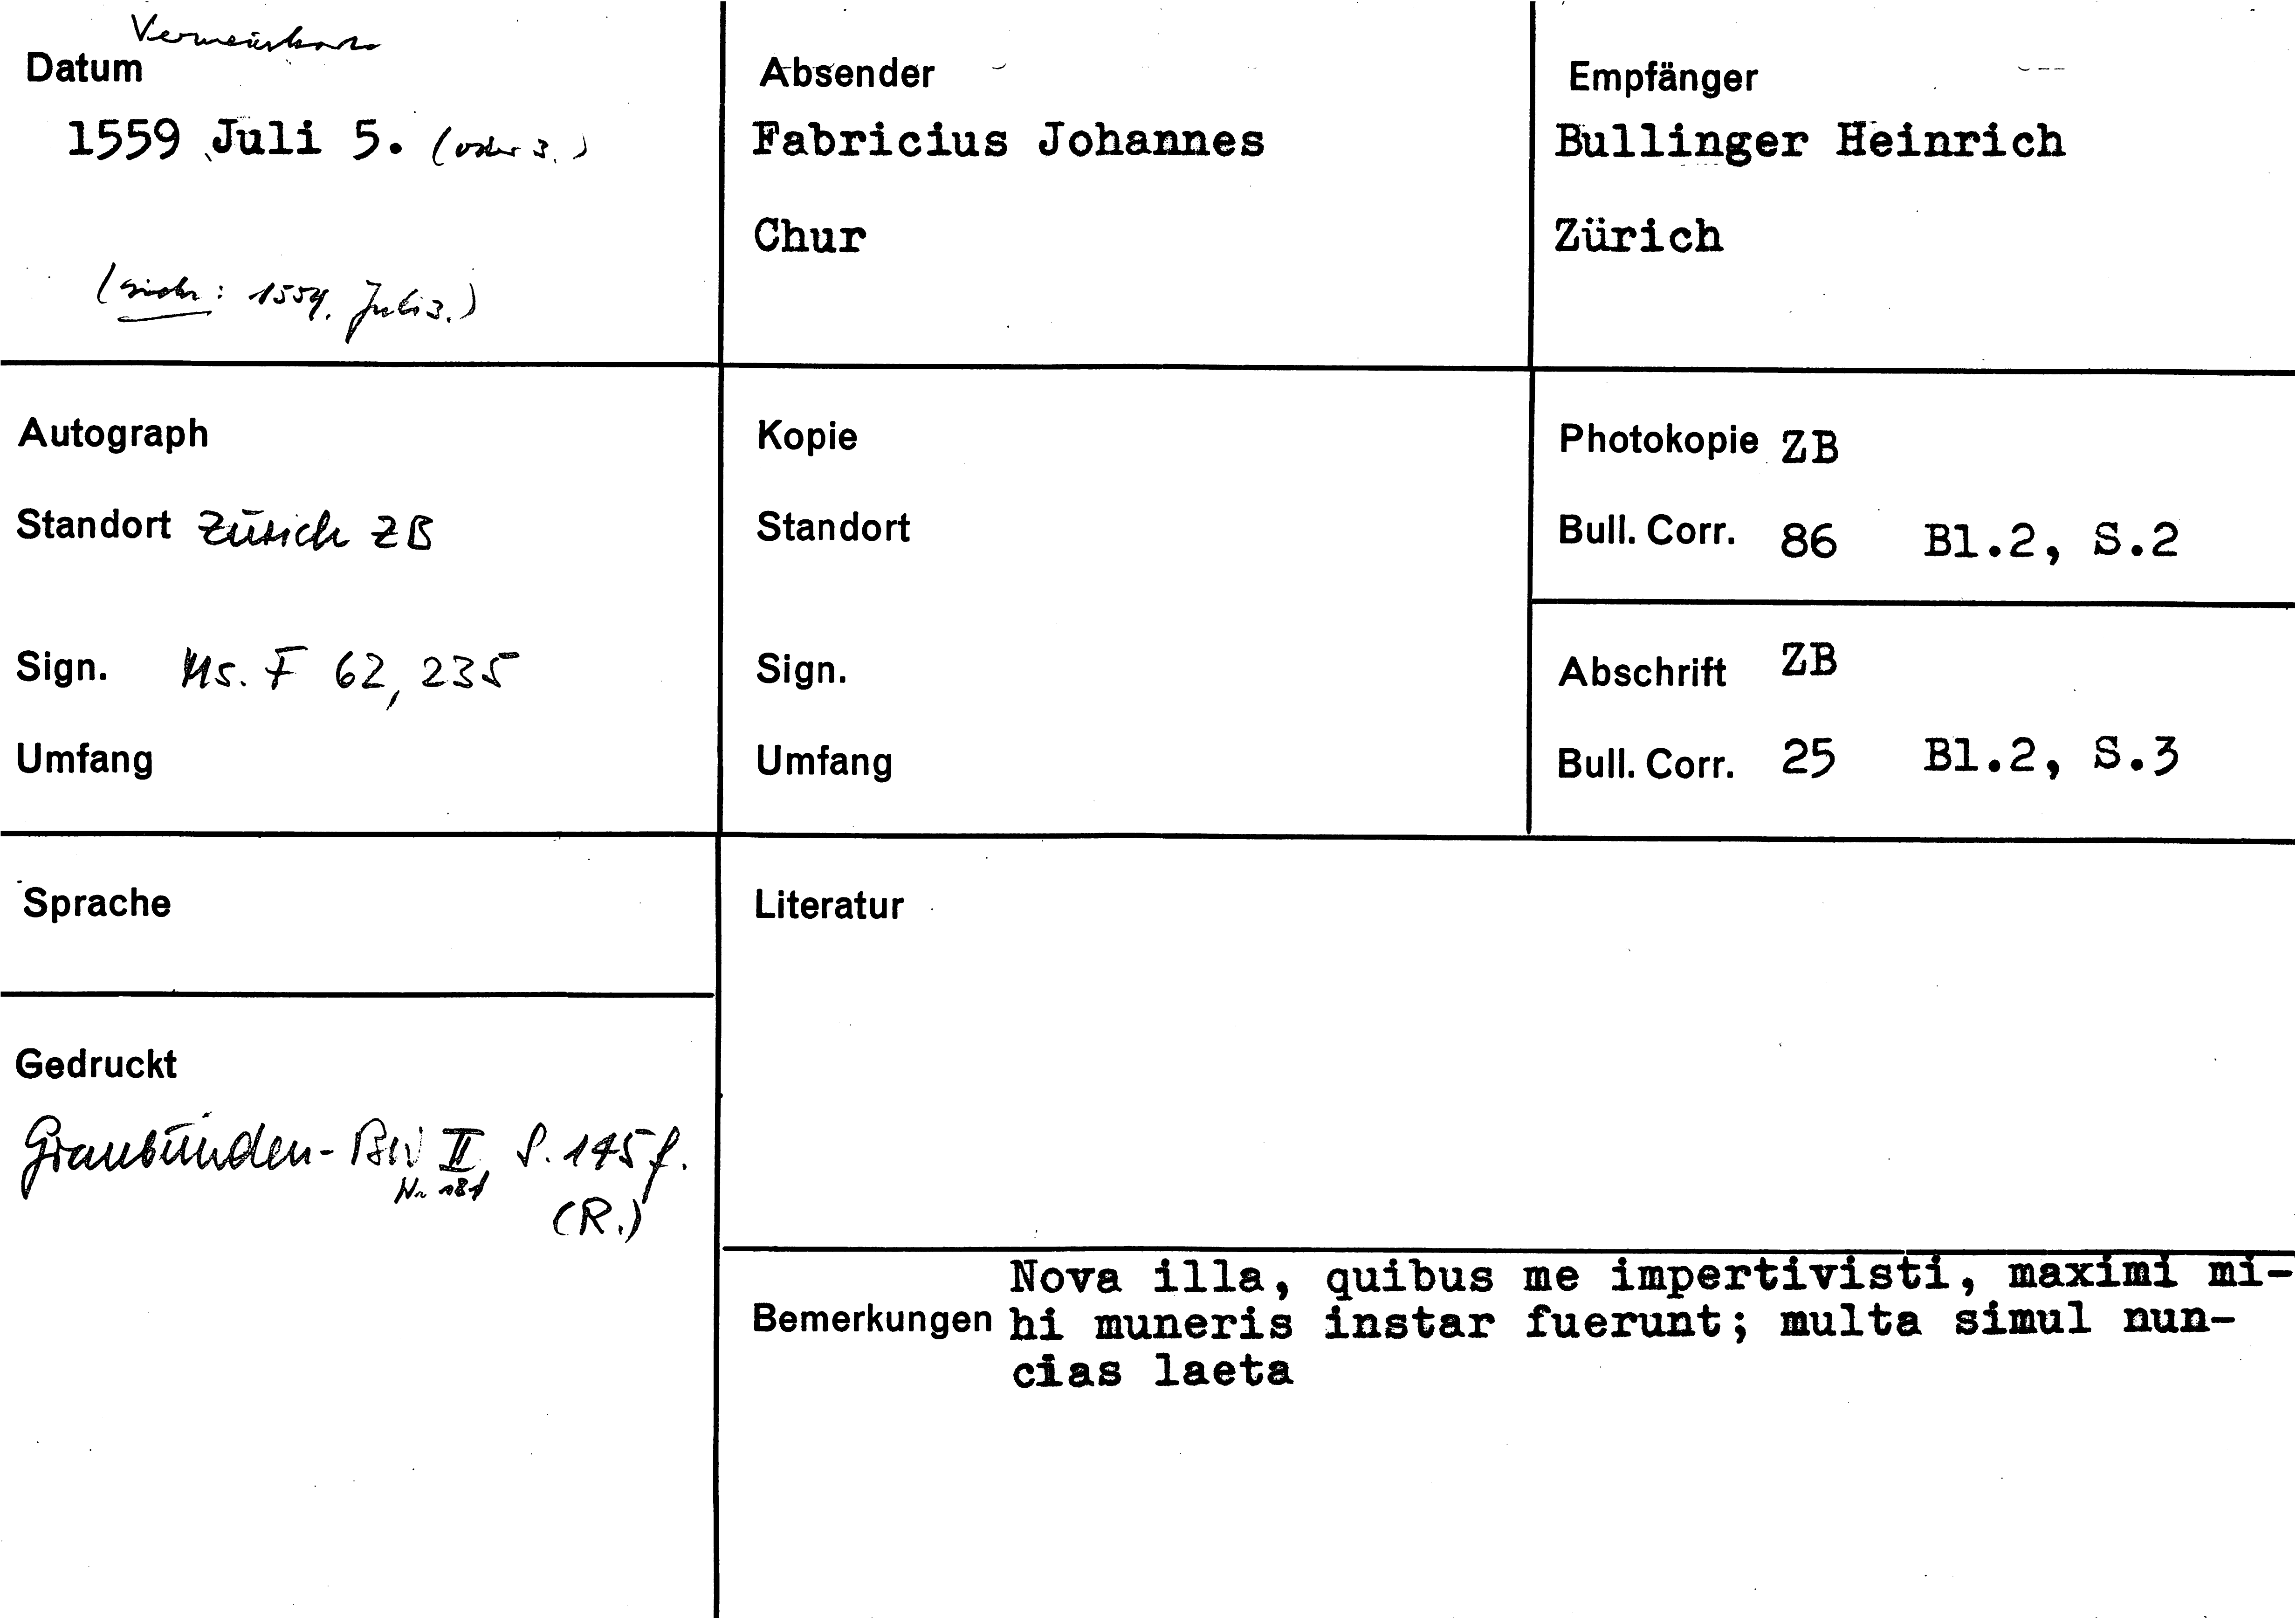 Datum
1559 Juli 5. (oder 3.)
(siehe: 1559. Juli 3.)
Absender
Fabricius Johannes
Chur
Empfänger
Bullinger Heinrich
Zürich
Autograph
Standort Zürich ZB
Sign. Ms. F 62, 235
Umfang
Kopie
Standort
Sign.
Umfang
Photokopie ZB
Bull. Corr. 86 Bl.2, S.2
Abschrift ZB
Bull. Corr. 25 Bl.2, S.3
Sprache
Gedruckt
Graubünden-BW II, S. 145 f.
Nr. 181
(R.)
Literatur
Bemerkungen
Nova illa, quibus me impertivisti, maximi mi-
hi muneris instar fuerunt; multa simul nun-
cias laeta